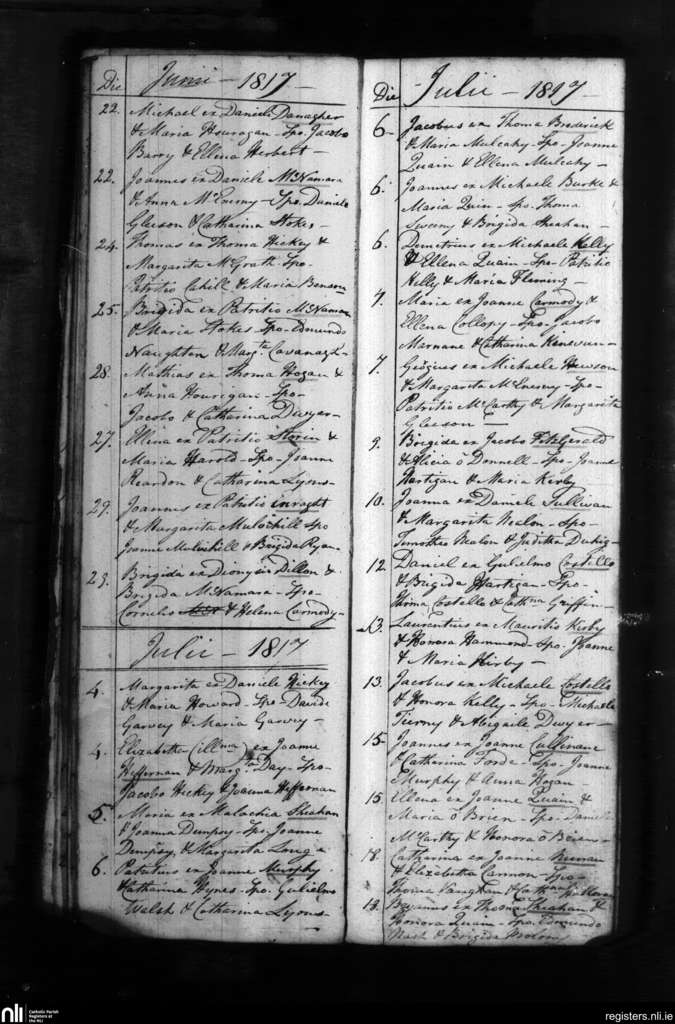 Die Junii - 1817 -
22. Michael ex Daniele Danagher
& Maria Houragan - Spo. Jacobo
Barry & Ellena Herbert -
22. Joannes ex Daniele McNamara
& Anna McEnemy - Spo. Daniele
Gleeson & Catharina Stokes -
24. Thomas ex Thoma Hickey &
Margarita McGrath Spo -
Patritio Cahill & Maria Benson
25. Brigida ex Patritio McNamara
& Maria Stokes - Spo - Edmundo
Naughton & Margta Cavanagh -
28. Mathias ex Thoma Hogan &
Anna Hourigan - Spo -
Jacobo & Catharina Dwyer -
27. Ellena ex Patritio Storin &
Maria Harold - Spo - Joanne
Reardon & Catharina Lyons -
29. Joannes ex Patritio
& Margarita Mulcihill Spo
Joanne Mulcihill & Brigida Ryan -
29. Brigida ex Dionysio Dillon &
Brigida McNamara - Spo -
Cornelio & Helena Carmody -
Julii - 1817
4. Margarita ex Daniele Hickey
& Maria Howard - Spo - Davide
Garvey & Maria Garvey -
4. Elizabetha ex Joanne
Heffernan & Margta Day - Spo -
Jacobo Hickey & Joanna Heffernan
5. Maria ex Malachia Sheahan
& Joanna Dempsy - Spo, Joanne
Dempsy, & Margarita Long -
6. Patritius ex Joanne Murphy
& Catharina Hynes - Spo. Gulielmo
Walsh & Catharina Lyons -
Die Julii - 1817 -
6 - Jacobus ex Thoma Broderick
& Maria Mulcahy - Spo - Joanne
Quain & Ellena Mulcahy -
6. Joannes ex Michaele Burke &
Maria Quin - Spo. Thoma
& Brigida Sheahan -
6. Demetrius ex Michaele Kelly
& Ellena Quain - Spo - Patritio
Kelly & Maria Fleming -
7. Maria ex Joanne Carmody &
Ellena Collopy - Spo - Jacobo
Marnane & Catharina
7. Geogius ex Michaele Hewson
& Margarita McEnemy - Spo -
Patritio McCarthy & Margarita
Gleeson -
9. Brigida ex Jacobo FitzGerald
& Alicia o Donnell - Spo - Joanne
Hartigan & Maria Kirby
10. Joanna ex Daniele Sullivan
& Margarita Nealon - Spo -
Timotheo Nealon & Juditha Duhig -
12. Daniel ex Gulielmo Costello
& Brigida Hartigan - Spo -
Thoma Costello & Cathna Griffin -
13. Laurentius ex Mauritio Kirby
& Honora Hammond - Spo - Joanne
& Maria Kirby -
13. Jacobus ex Michaele Costello
& Honora Kelly - Spo - Michaele
Tierny & Abigaile Dwyer -
15 - Joannes ex Joanne Cullinane
& Catharina Forde - Spo - Joanne
Murphy & Anna Hogan
15. Ellena ex Joanne Quain &
Maria o Brien - Spo - Daniele
McCarthy & Honora o Brien -
18. Catharina ex Joanne
& Elizabetha Cannon - Spo -
Thoma Vaughan & Cathna
13. ex Thoma Sheahan &
Honora Quain - Spo - Edmundo
Nash & Brigida
nli
Catholic Parish
Registers at
the NLI
registers.nli.ie